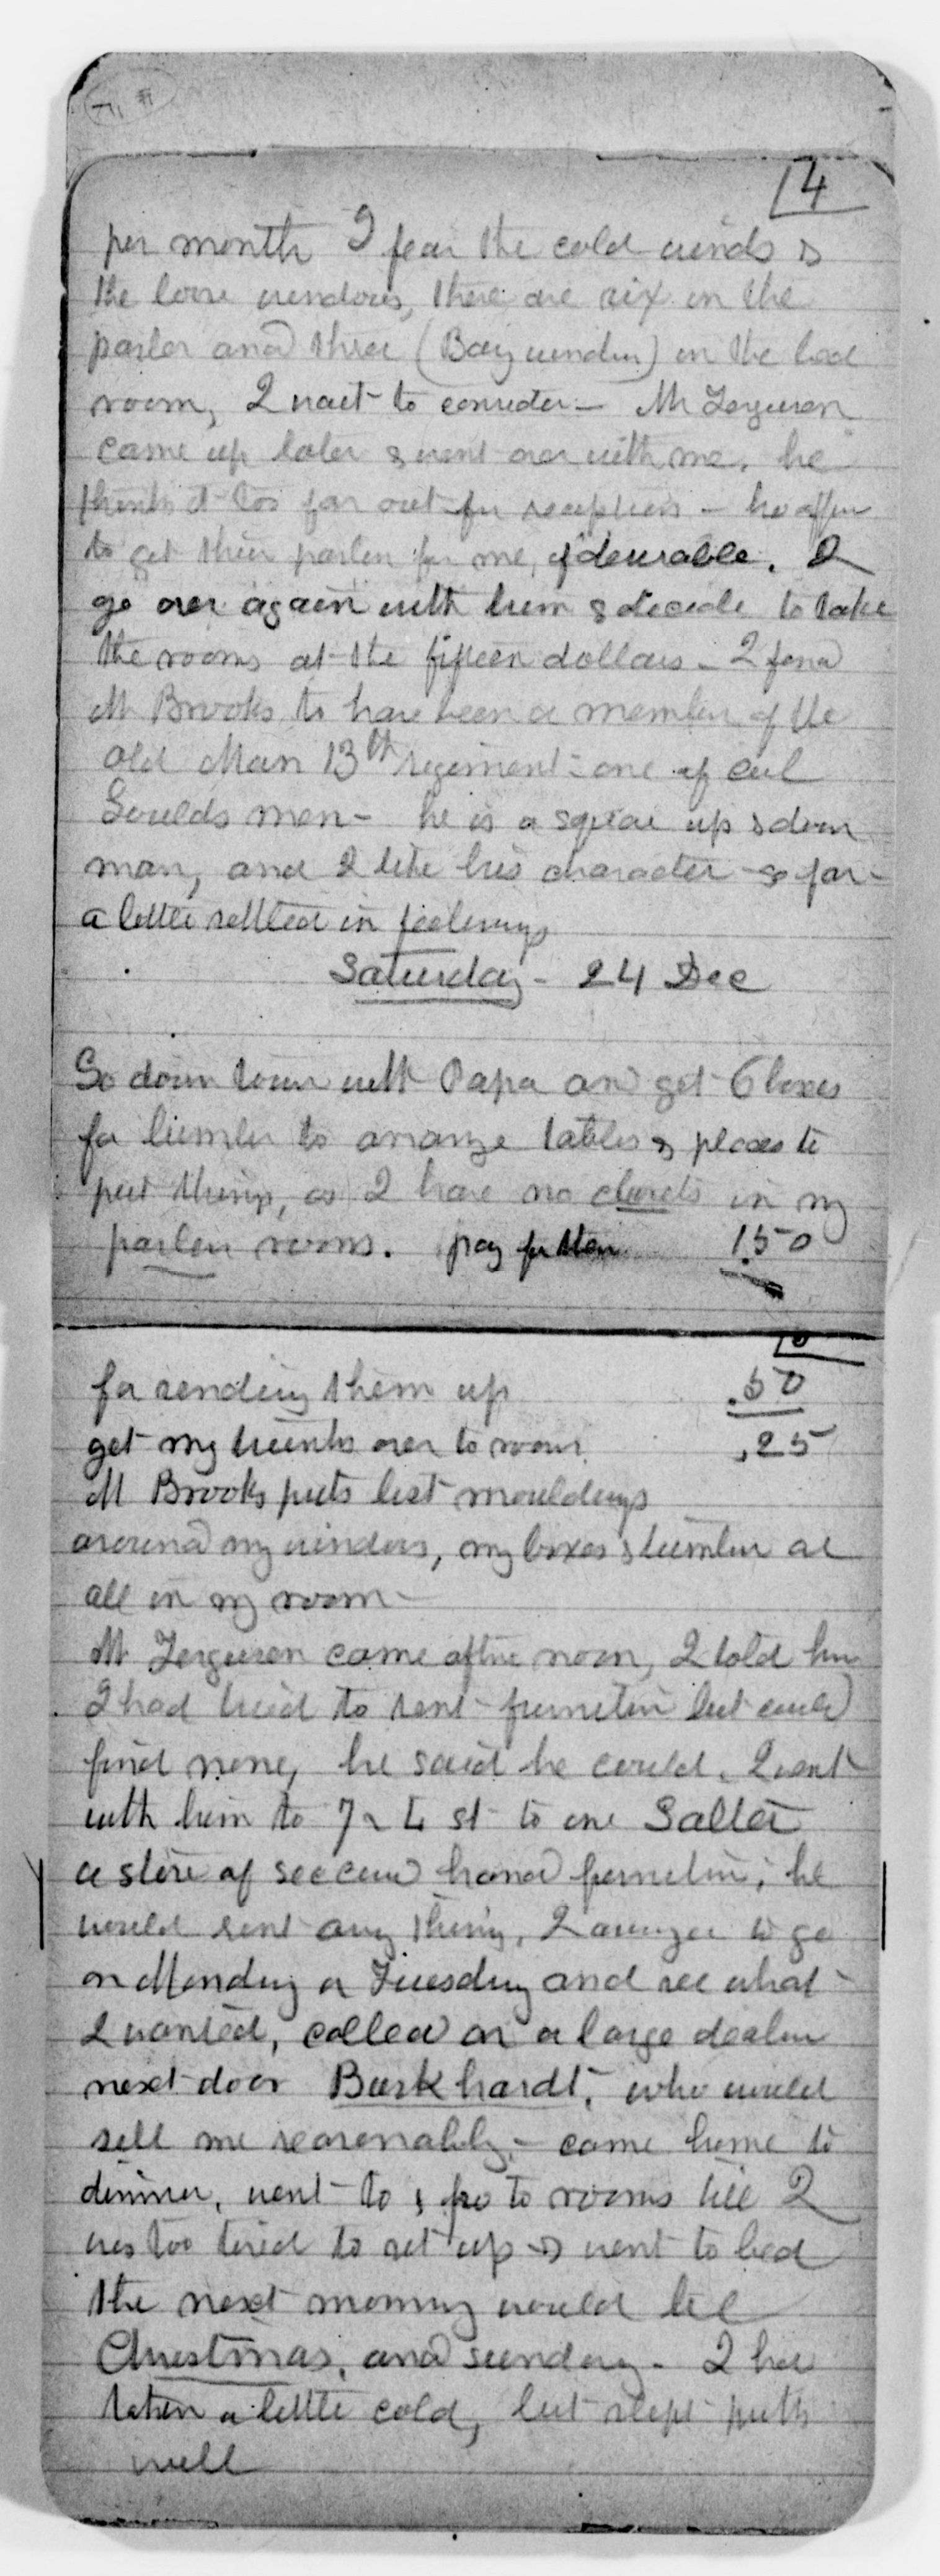 4
per month I fear the cold winds &
the loose windows, there are six in the
parlor and three (Bay window) in the bed
room, I wait to consider — Mr Ferguson
came up later & went over with me, he
thinks it too far out for receptions — he offers
to get their parlor for me, if desirable. I
go over again with him & decide to take
the rooms at the fifteen dollars — I find
Mr Brooks to have been a member of the
old Mass 13th regiment — one of Col
Goulds men — he is a square up & down
man, and I like his character so far —
a little settled in feelings
Saturday — 24 Dec
Go down town with Papa and get 6 boxes
for lumber to arrange tables & places to
put things, as I have no closets in my
parlor rooms. pay for them 1.50
for sending them up .50
get my trunks over to rooms .25
Mr Brooks puts list mouldings
around my windows, my boxes & lumber are
all in my room —
Mr Ferguson came after noon, I told him
I had tried to rent furniture but could
find none, he said he could. I went
with him to 7 & L st to one Salter
a store of seccand hand furniture, he
would rent any thing, I arranged to go
on Monday or Tuesday and see what
I wanted, called on a large dealer
next door Burkhardt, who would
sell me reasonably — came home to
dinner, went to & fro to rooms till I
was too tired to set up & went to bed
the next morning would be
Christmas, and sunday — I have
taken a little cold, but slept
well